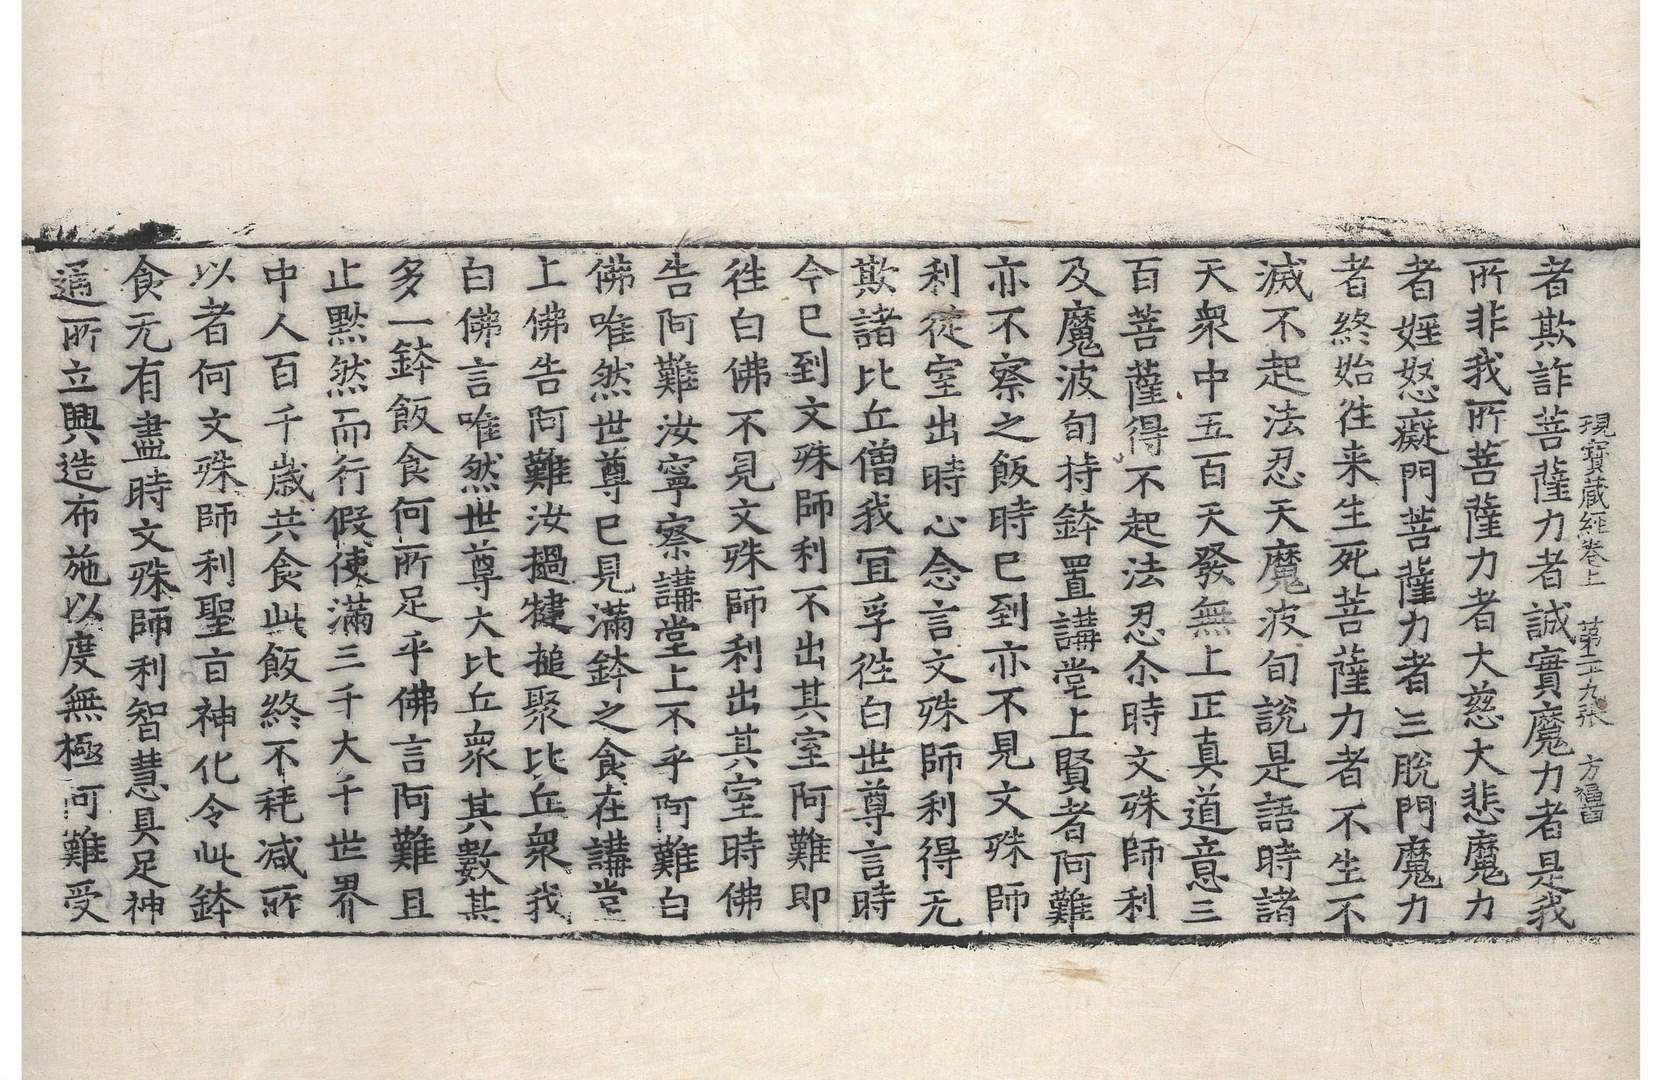 現寶蔵經卷上 第二十九張 方福畱
者欺詐菩薩力者誠實魔力者是我
所非我所菩薩力者大慈大悲魔力
者婬怒癡門菩薩力者三脫門魔力
者終始往来生死菩薩力者不生不
滅不起法忍天魔波旬說是語時諸
天衆中五百天發無上正真道意三
百菩薩得不起法忍尒時文殊師利
及魔波旬持鉢置講堂上賢者阿難
亦不察之飯時已到亦不見文殊師
利從室出時心念言文殊師利得无
欺諸比丘僧我冝孚徃白世尊言時
今已到文殊師利不出其室阿難即
徃白佛不見文殊師利出其室時佛
告阿難汝寧察講堂上不乎阿難白
佛唯然世尊已見滿鉢之食在講堂
上佛告阿難汝撾揵搥聚比丘衆我
白佛言唯然世尊大比丘衆其數甚
多一鉢飯食何所足乎佛言阿難且
止黙然而行假使滿三千大千世界
中人百千歲共食此飯終不秏减所
以者何文殊師利聖旨神化令此鉢
食无有盡時文殊師利智慧具足神
通所立興造布施以度無極阿難受